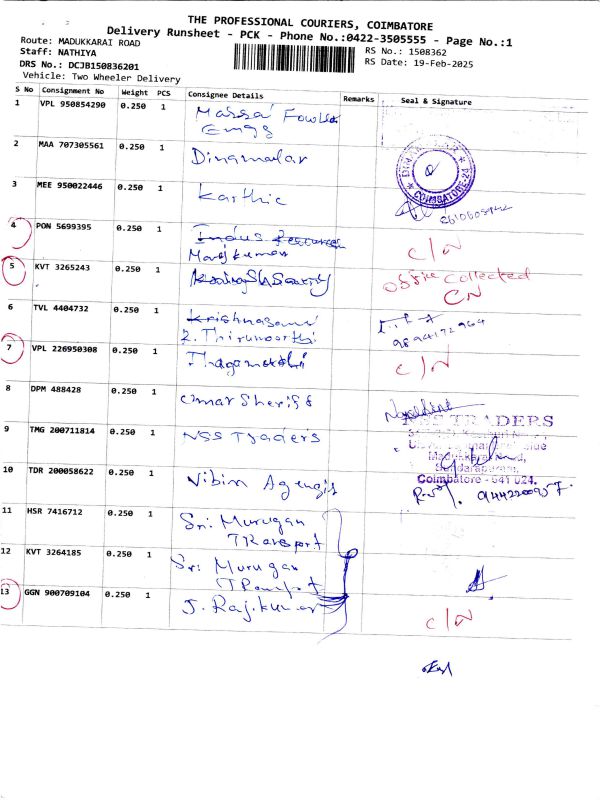 THE PROFESSIONAL COURIERS, COIMBATORE
Delivery Runsheet - PCK - Phone No.:0422-3505555 - Page No.:1
Route: MADUKKARAI ROAD
RS No.: 1508362
Staff: NATHIYA
RS Date: 19-Feb-2025
DRS No.: DCJB150836201
Vehicle: Two Wheeler Delivery
S No Consignment No Weight PCS Consignee Details Remarks Seal & Signature
1 VPL 950854290 0.250 1 Massa
Engg
2 MAA 707305561 0.250 1 Dinamalar
COIMBATORE-24
3 MEE 950022446 0.250 1 Karthic
4 PON 5699395 0.250 1 Indus Resources C/N
Manojkumar
5 KVT 3265243 0.250 1 Security office collected
CN
6 TVL 4404732 0.250 1 Krishnasami
2. Thirumoorthi 9894172964
7 VPL 226950308 0.250 1 C/N
8 DPM 488428 0.250 1 Umar Sheriff
9 TMG 200711814 0.250 1 NSS Traders NSS TRADERS
Madukkarai Road,
Sundarapuram,
Coimbatore - 641 024.
10 TDR 200058622 0.250 1 Nibin
11 HSR 7416712 0.250 1 Sri Murugan
Transport
12 KVT 3264185 0.250 1 Sri Murugan
Transport
13 GGN 900709104 0.250 1 J. Rajkumar C/N